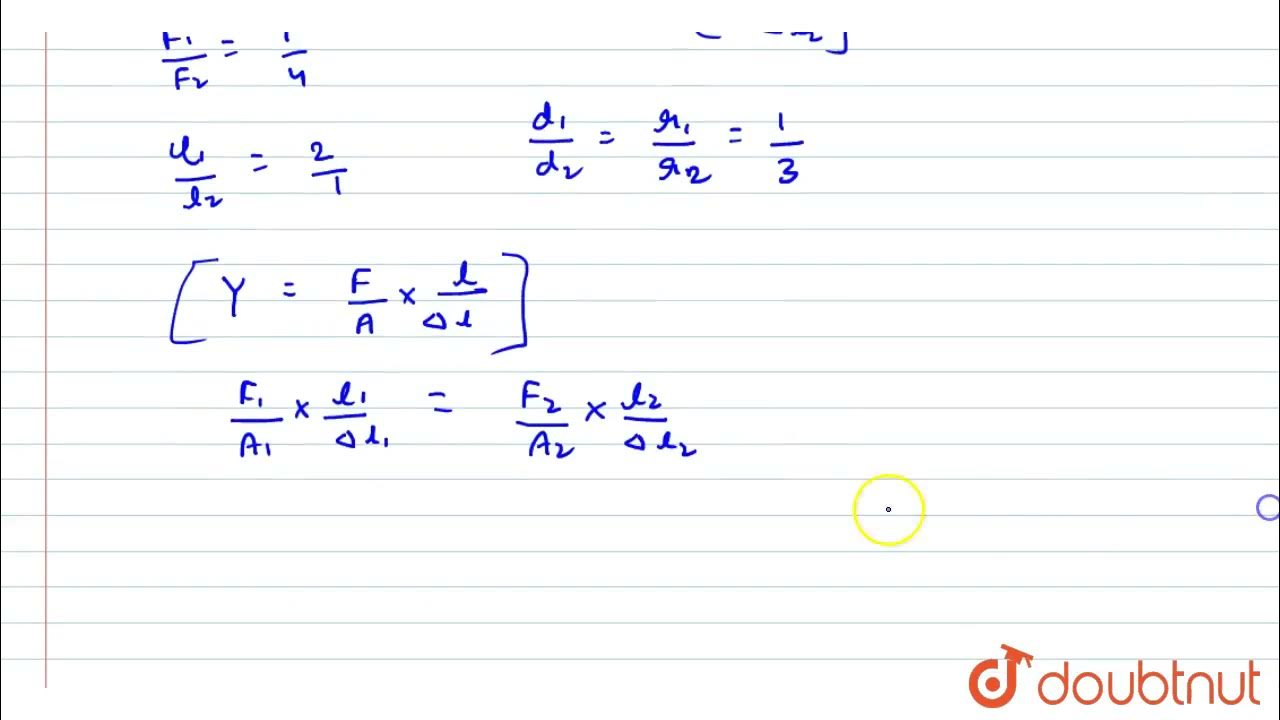 F₁/F₂ = 1/4
l₁/l₂ = 2/1
d₁/d₂ = r₁/r₂ = 1/3
[Y = F/A × l/Δl]
F₁/A₁ × l₁/Δl₁ = F₂/A₂ × l₂/Δl₂
doubtnut